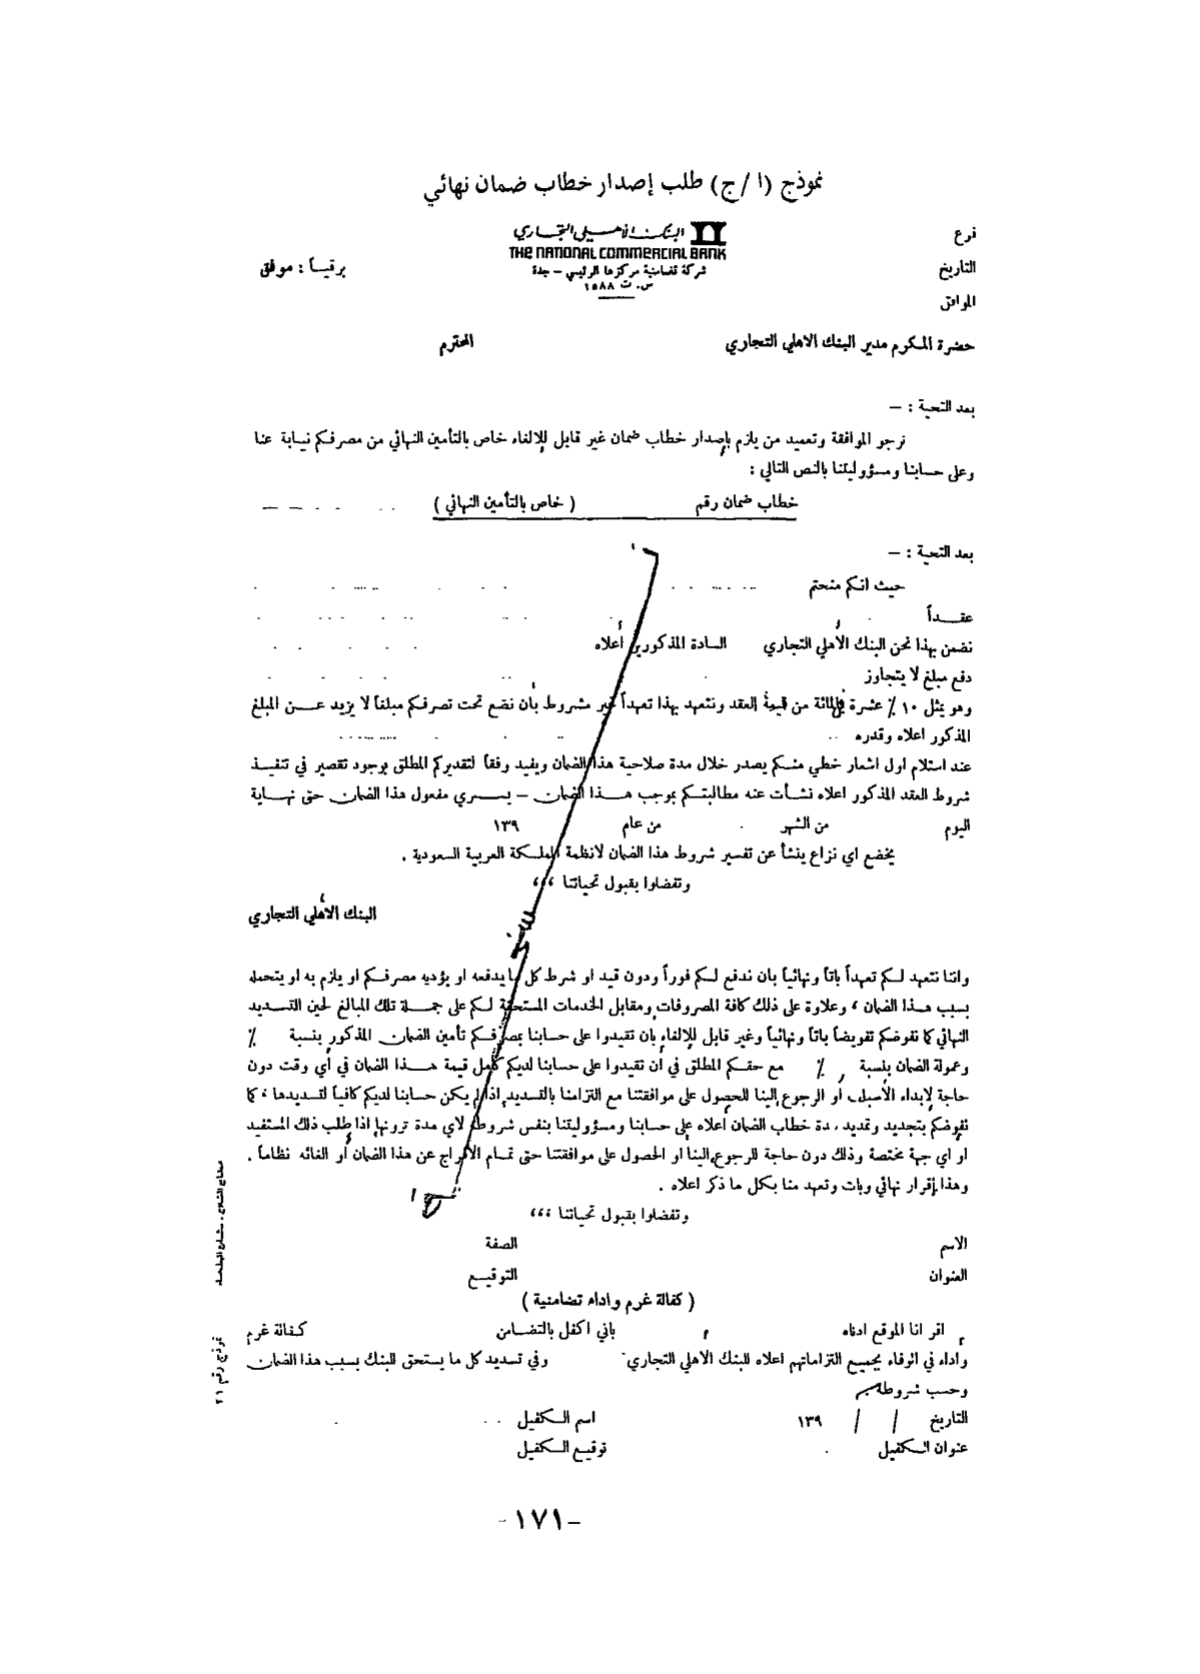 نموذج (ا / ج) طلب إصدار خطاب ضمان نهائي
فرع
البنك الأهلي التجاري
THE NATIONAL COMMERCIAL BANK
التاريخ
برقياً : موفق
شركة تضامنية مركزها الرئيسي – جدة
س. ت ١٥٨٨
الموافق
حضرة المكرم مدير البنك الاهلي التجاري المحترم
بعد التحية : –
نرجو الموافقة وتعميد من يلزم بإصدار خطاب ضمان غير قابل للإلغاء خاص بالتأمين النهائي من مصرفكم نيابة عنا
وعلى حسابنا ومسؤوليتنا بالنص التالي :
خطاب ضمان رقم ( خاص بالتأمين النهائي )
بعد التحية : –
حيث انكم منحتم
عقداً
نضمن بهذا نحن البنك الأهلي التجاري السادة المذكورين أعلاه
دفع مبلغ لا يتجاوز
وهو يمثل ١٠ ٪ عشرة في المائة من قيمة العقد ونتعهد بهذا تعهداً غير مشروط بأن نضع تحت تصرفكم مبلغاً لا يزيد عن المبلغ
المذكور اعلاه وقدره
عند استلام اول اشعار خطي منكم يصدر خلال مدة صلاحية هذا الضمان ويفيد وفقاً لتقديركم المطلق بوجود تقصير في تنفيذ
شروط العقد المذكور اعلاه نشأت عنه مطالبتكم بموجب هذا الضمان – يسري مفعول هذا الضمان حتى نهاية
اليوم من الشهر من عام ١٣٩
يخضع اي نزاع ينشأ عن تفسير شروط هذا الضمان لانظمة المملكة العربية السعودية .
وتفضلوا بقبول تحياتنا ،،،
البنك الأهلي التجاري
واننا نتعهد لكم تعهداً باتاً ونهائياً بان ندفع لكم فوراً ودون قيد او شرط كل ما يدفعه او يؤديه مصرفكم او يلزم به او يتحمله
بسبب هذا الضمان ، وعلاوة على ذلك كافة المصروفات ومقابل الخدمات المستحقة لكم على جملة تلك المبالغ لحين التسديد
النهائي كما نفوضكم تفويضاً باتاً ونهائياً وغير قابل للإلغاء بان تقيدوا على حسابنا بمصرفكم تأمين الضمان المذكور بنسبة ٪
وعمولة الضمان بنسبة ٪ مع حقكم المطلق في أن تقيدوا على حسابنا لديكم كامل قيمة هذا الضمان في أي وقت دون
حاجة لإبداء الأسباب أو الرجوع إلينا للحصول على موافقتنا مع التزامنا بالتسديد إذا لم يكن حسابنا لديكم كافياً لتسديدها ، كما
نفوضكم بتجديد وتمديد مدة خطاب الضمان اعلاه على حسابنا ومسؤوليتنا بنفس شروطه لاي مدة ترونها إذا طلب ذلك المستفيد
او اي جهة مختصة وذلك دون حاجة للرجوع إلينا او الحصول على موافقتنا حتى تمام الافراج عن هذا الضمان أو الغائه نظاماً .
وهذا إقرار نهائي وبات وتعهد منا بكل ما ذكر اعلاه .
وتفضلوا بقبول تحياتنا ،،،
الاسم الصفة
العنوان التوقيع
( كفالة غرم واداء تضامنية )
اقر انا الموقع ادناه باني اكفل بالتضامن كفالة غرم
واداء في الوفاء بجميع التزاماتهم اعلاه للبنك الاهلي التجاري وفي تسديد كل ما يستحق للبنك بسبب هذا الضمان
وحسب شروطه
التاريخ / / ١٣٩ اسم الكفيل
عنوان الكفيل توقيع الكفيل
نموذج رقم ٢١
–١٧١–